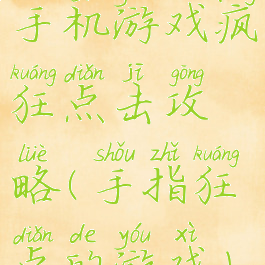 手机游戏疯
kuáng diǎn jī gōng
狂点击攻
lüè shǒu zhǐ kuáng
略(手指狂
diǎn de yóu xì
点的游戏)